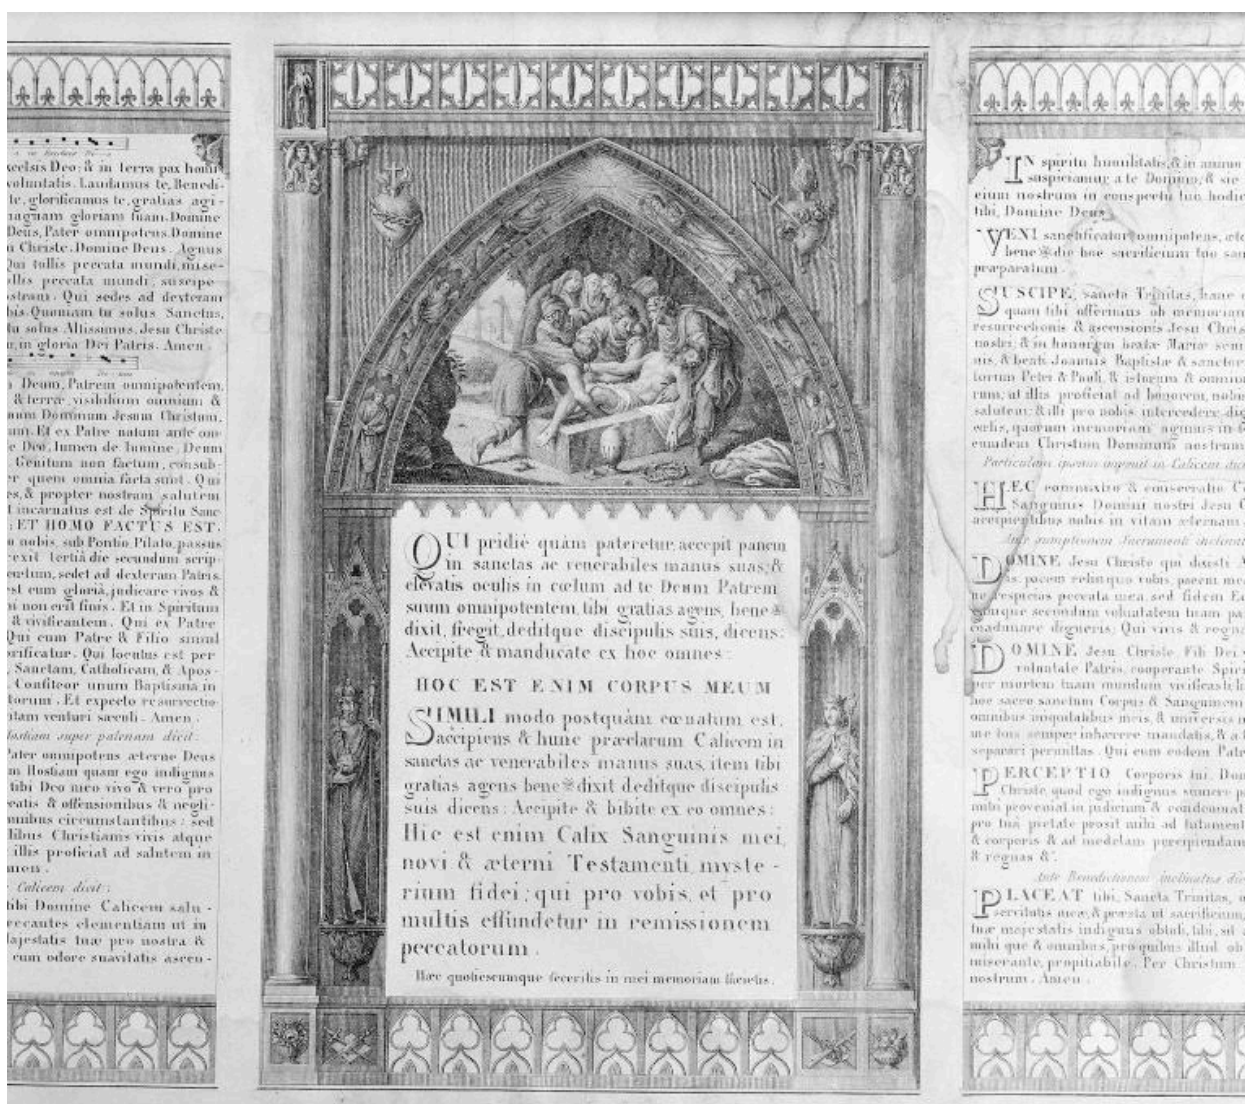 excelsis Deo: & in terra pax homi
voluntatis. Laudamus te, Benedi-
te, glorificamus te, gratias agi-
magnam gloriam tuam. Domine
Deus, Pater omnipotens. Domine
Christe. Domine Deus. Agnus
Qui tollis peccata mundi, mise-
ollis peccata mundi, suscipe
ostram. Qui sedes ad dexteram
bis. Quoniam tu solus Sanctus,
tu solus Altissimus, Jesu Christe
u, in gloria Dei Patris. Amen.
Deum, Patrem omnipotentem,
& terræ, visibilium omnium &
num Dominum Jesum Christum,
um. Et ex Patre natum ante om-
e Deo, lumen de lumine, Deum
Genitum non factum, consub-
er quem omnia facta sunt. Qui
es, & propter nostram salutem
t incarnatus est de Spiritu Sanc
: ET HOMO FACTUS EST.
o nobis, sub Pontio Pilato, passus
rexit tertiâ die secundum scrip-
cœlum, sedet ad dexteram Patris.
est cum gloriâ, judicare vivos &
non erit finis. Et in Spiritum
& vivificantem. Qui ex Patre
Qui cum Patre & Filio simul
orificatur. Qui locutus est per
, Sanctam, Catholicam, & Apos-
. Confiteor unum Baptisma in
torum. Et expecto resurrectio-
itam venturi sæculi. Amen.
Hostiam super patenam dicit:
Pater omnipotens æterne Deus
m Hostiam quam ego indignus
tibi Deo meo vivo & vero pro
catis & offensionibus & negli-
mnibus circumstantibus: sed
libus Christianis vivis atque
illis proficiat ad salutem in
men.
Calicem dicit:
tibi Domine Calicem salu-
recantes clementiam ut in
Majestatis tuæ pro nostra &
cum odore suavitatis ascen-
QUI pridiè quàm pateretur, accepit panem
in sanctas ac venerabiles manus suas, &
elevatis oculis in cœlum ad te Deum Patrem
suum omnipotentem, tibi gratias agens, bene✠
dixit, fregit, deditque discipulis suis, dicens:
Accipite & manducate ex hoc omnes:
HOC EST ENIM CORPUS MEUM
SIMILI modo postquàm cœnatum est,
accipiens & hunc præclarum Calicem in
sanctas ac venerabiles manus suas, item tibi
gratias agens bene✠dixit deditque discipulis
suis dicens: Accipite & bibite ex eo omnes:
Hic est enim Calix Sanguinis mei,
novi & æterni Testamenti, myste-
rium fidei; qui pro vobis, et pro
multis effundetur in remissionem
peccatorum.
Hæc quotiescumque feceritis in mei memoriam facietis.
IN spiritu humilitatis, & in animo
suspiciamur a te Domine, & sic
cium nostrum in conspectu tuo hodie
tibi, Domine Deus.
VENI sanctificator omnipotens, æte
bene✠dic hoc sacrificium tuo san
præparatum.
SUSCIPE, sancta Trinitas, hanc
quam tibi offerimus ob memoriam
resurrectionis & ascensionis Jesu Chris
nostri; & in honorem beatæ Mariæ sem
nis, & beati Joannis Baptistæ & sanctor
torum Petri & Pauli, & istorum & omnium
rum; ut illis proficiat ad honorem, nobis
salutem: & illi pro nobis intercedere dig
cœlis, quorum memoriam agimus in
eumdem Christum Dominum nostrum
Particulam quam imponit in Calicem dic
HÆC commixtio & consecratio C
Sanguinis Domini nostri Jesu C
accipientibus nobis in vitam æternam
Ante sumptionem Sacramenti
DOMINE Jesu Christe qui dixisti A
is: pacem relinquo vobis, pacem mea
ne respicias peccata mea, sed fidem Ec
eamque secundum voluntatem tuam pa
coadunare digneris; Qui vivis & regna
DOMINE Jesu Christe, Fili Dei
voluntate Patris, cooperante Spiri
per mortem tuam mundum vivificasti, li
hoc sacro sanctum Corpus & Sanguinem
omnibus iniquitatibus meis, & universis m
me tuis semper inhærere mandatis, & a
separari permittas. Qui cum eodem Patr
PERCEPTIO Corporis tui, Dom
Christe, quod ego indignus sumere p
mihi proveniat in judicium & condemnat
pro tuâ pietate prosit mihi ad tutament
& corporis & ad medelam percipiendam
& regnas &c.
Ante Benedictionem inclinatus dic
PLACEAT tibi, Sancta Trinitas, o
servitutis meæ, & præsta ut sacrificium,
tuæ majestatis indignus obtuli, tibi, sit
mihi que & omnibus, pro quibus illud ob
miserante, propitiabile. Per Christum
nostrum. Amen.